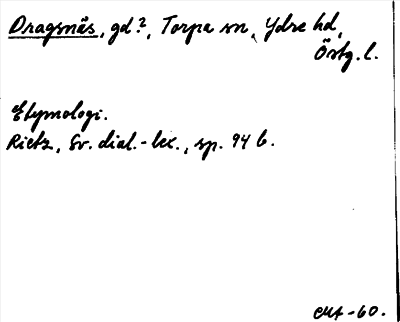 Dragsnäs, gd?, Torpa sn, Ydre hd,
Östg. l.
Etymologi.
Rietz, Sv. dial.-lex., sp. 94 b.
CMA-60.